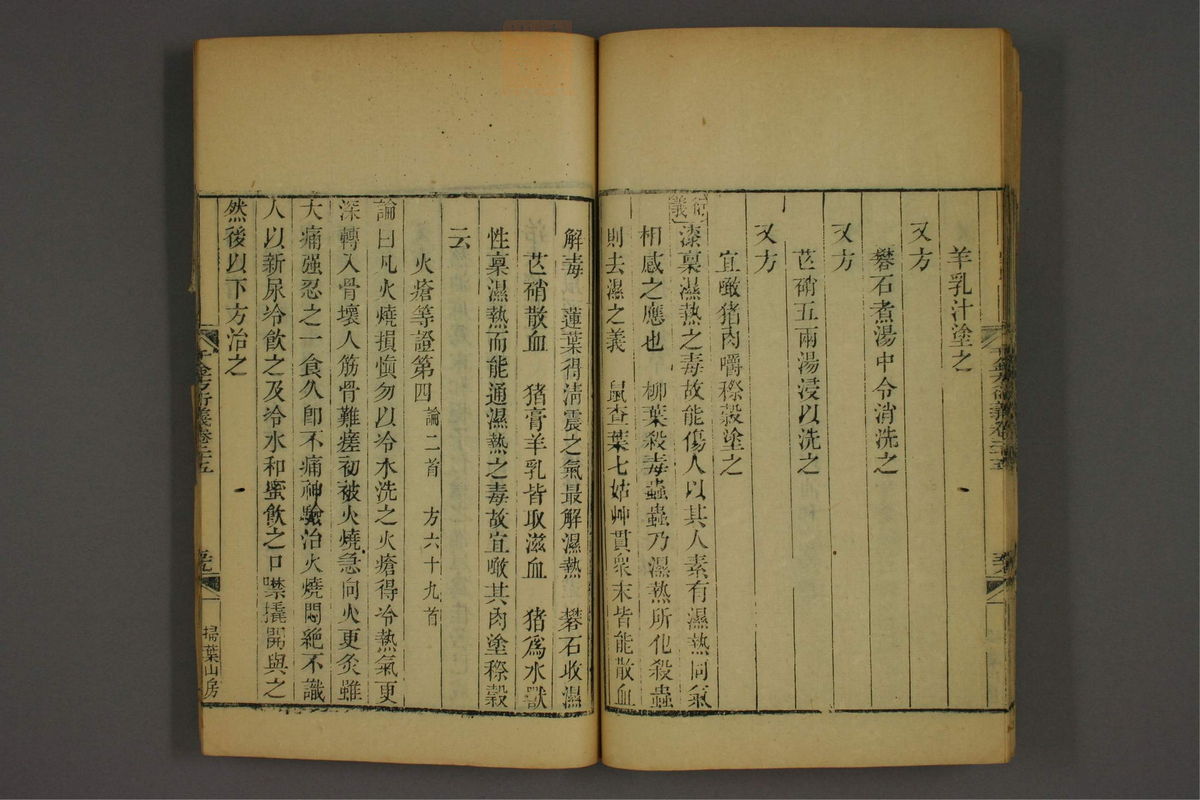 羊乳汁塗之
又方
礬石煮湯中令消洗之
又方
芒硝五兩湯浸以洗之
又方
宜噉猪肉嚼穄穀塗之
衍義
漆稟濕熱之毒故能傷人以其人素有濕熱同氣
相感之應也　柳葉殺毒蟲蟲乃濕熱所化殺蟲
則去濕之義　鼠查葉七姑艸貫衆末皆能散血
解毒　蓮葉得淸震之氣最解濕熱　礬石收濕
芒硝散血　猪膏羊乳皆取滋血　猪爲水獸
性稟濕熱而能通濕熱之毒故宜噉其肉塗穄穀
云
火瘡等證第四　論二首　方六十九首
論曰凡火燒損愼勿以冷水洗之火瘡得冷熱氣更
深轉入骨壞人筋骨難瘥初被火燒急向火更灸雖
大痛强忍之一食久卽不痛神驗治火燒悶絶不識
人以新尿冷飮之及冷水和蜜飮之口噤撬開與之
然後以下方治之
千金方衍義卷二十五
掃葉山房